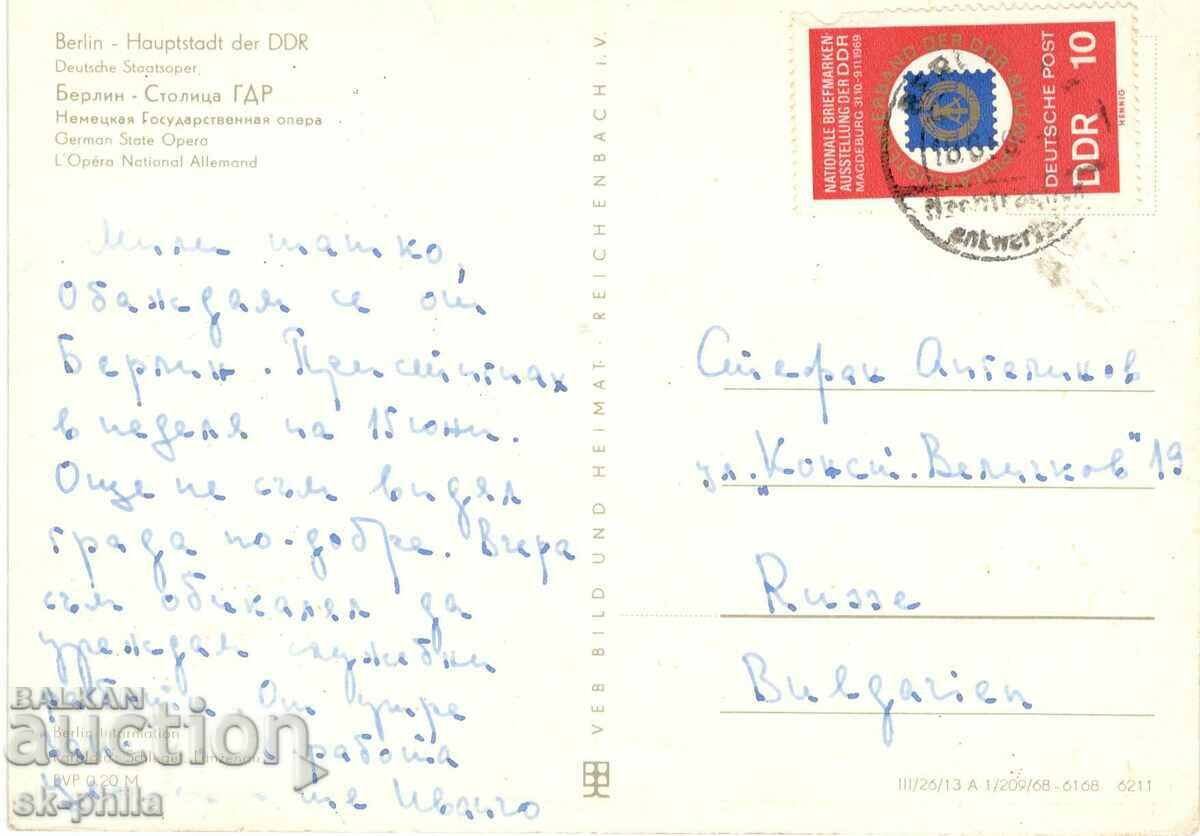 Berlin - Hauptstadt der DDR
Deutsche Staatsoper
Берлин - Столица ГДР
Немецкая Государственная опера
German State Opera
L'Opéra National Allemand
Мили татко,
Обаждам се от
Берлин. Пристигнах
в неделя на 15 юни.
Още не съм видял
града по-добре. Вчера
съм обикалял да
уреждам служебни
работи. От утре
работа
ще Иванчо
Berlin-Information
EVP 0,20 M
VEB BILD UND HEIMAT · REICHENBACH i. V.
NATIONALE BRIEFMARKEN-
AUSSTELLUNG DER DDR
MAGDEBURG 31.10-9.11.1969
VERBAND DER DDR
DEUTSCHE POST
DDR 10
HENNIG
entwertet
Стефан Ангеликов
ул. "Конст. Величков" 19
Russe
Bulgarien
III/26/13 A 1/209/68-6168 6211
BALKAN
auction
sk-phila